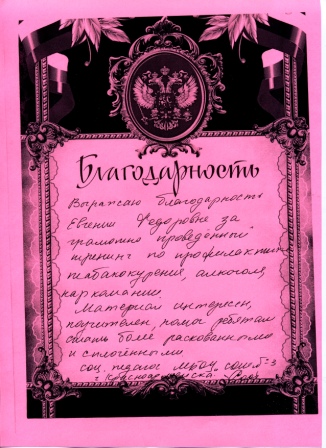 Благодарность
Выражаю благодарность
Евгении Федоровне за
грамотно проведённый
тренинг по профилактике
табакокурения, алкоголя,
наркомании.
Материал интересен,
поучителен, помог ребятам
стать более раскованными
и сплочёнными
соц. педагог МБОУ СОШ №3
г. Красноармейска